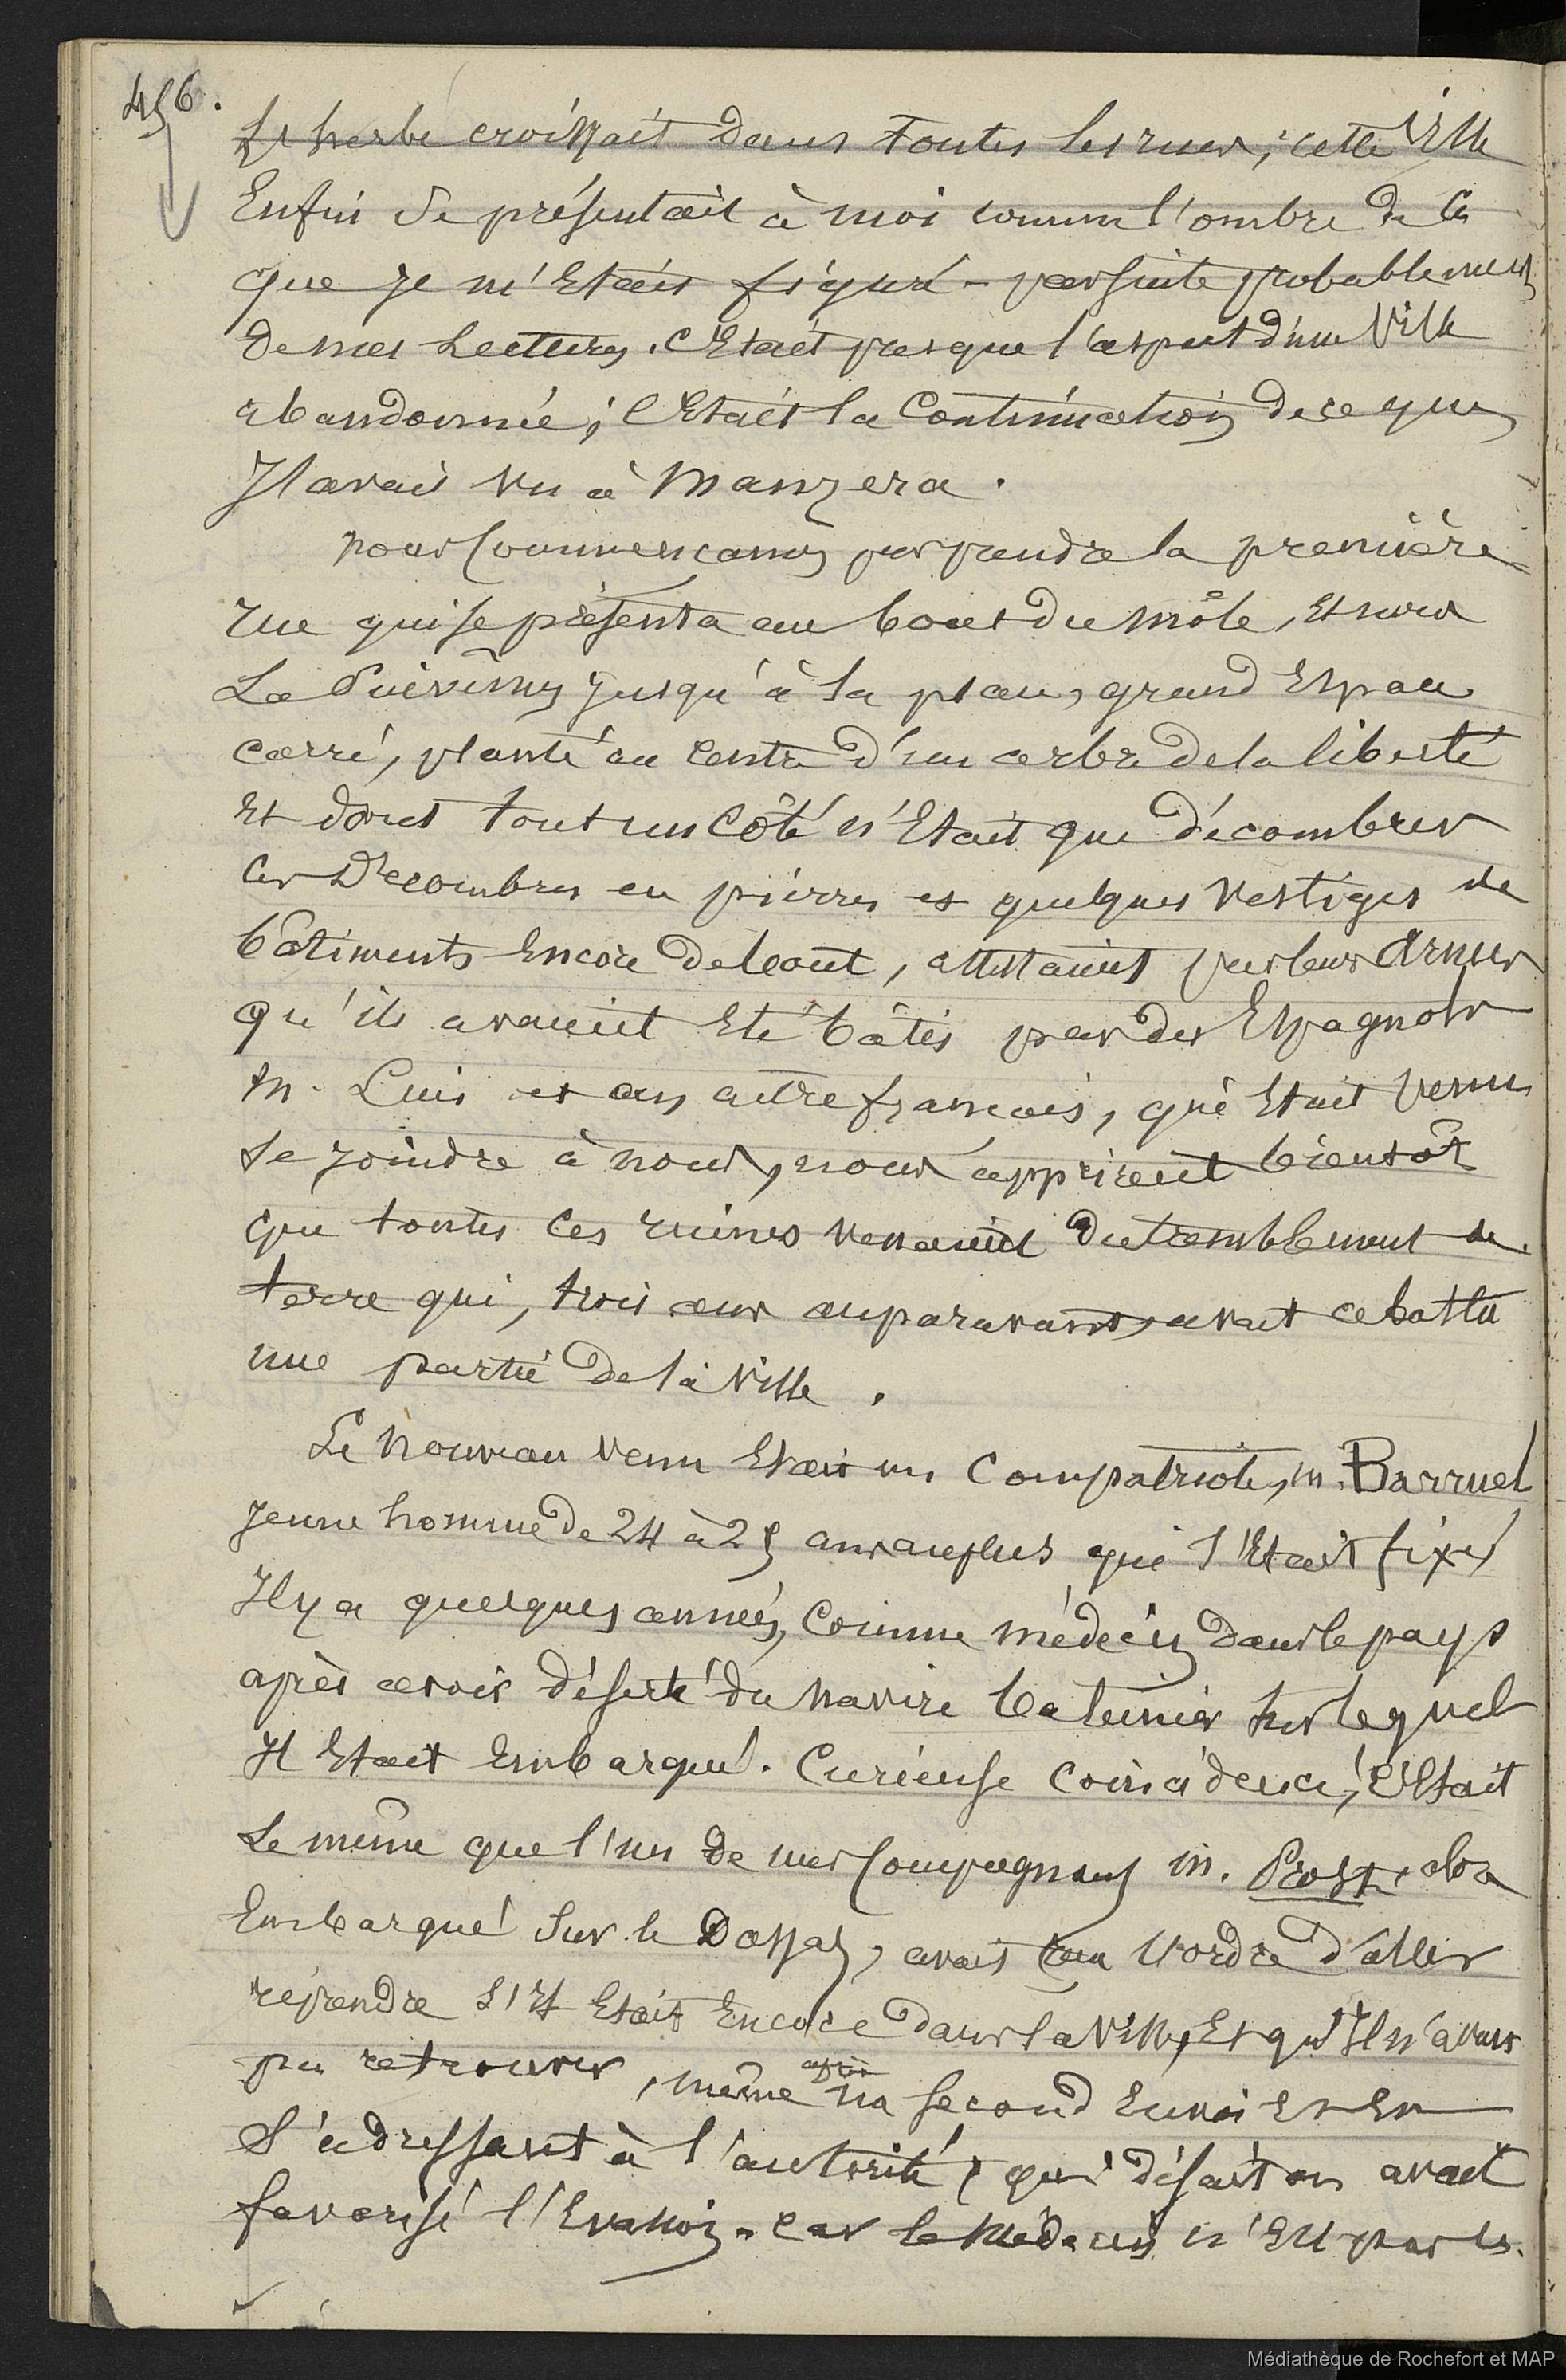 456.
L'herbe croissait dans toutes les rues; cette ville
Enfin se présentait à moi comme l'ombre de ce
que je m'Etais figuré - par suite probablement
de mes Lectures. C'Etait presque l'aspect d'une Ville
abandonnée; c'Etait la Continuation de ce que
J'avais vu à Manzera.
nous Commencames par prendre la première
rue qui se présenta au bout du môle, et nous
La Suivîmes jusqu'à la place, grand Espace
carré, planté au centre d'un arbre de la liberté
Et dont tout un Côté n'Etait que décombres
Ces Décombres en pierres et quelques vestiges de
bâtiments Encore debout, attestaient par leurs Armes
qu'ils avaient Eté bâtis par des Espagnols
M. Luis et un autre français, qui Etait venu
se joindre à nous, nous apprirent bientôt
que toutes ces ruines venaient du tremblement de
terre qui, trois ans auparavant, avait abattu
une partie de la Ville.
Le nouveau venu Etait un Compatriote, M. Barruel
Jeune homme de 24 à 25 ans au plus qui s'Etait fixé
Il y a quelques années, Comme médecin dans le pays
après avoir déserté du navire baleinier sur lequel
Il Etait Embarqué. Curieuse Coïncidence, c'Etait
Le même que l'un de mes Compagnons M. Prost, alors
Embarqué Sur le Dassas, avait reçu l'ordre d'aller
reprendre s'Il Etait Encore dans la Ville, Et qu'Il n'avait
pu retrouver, même après un second Envoi Et En
S'adressant à l'autorité, qui disait-on avait
favorisé l'Evasion - Car le Médecin n'Est pas les
Médiathèque de Rochefort et MAP